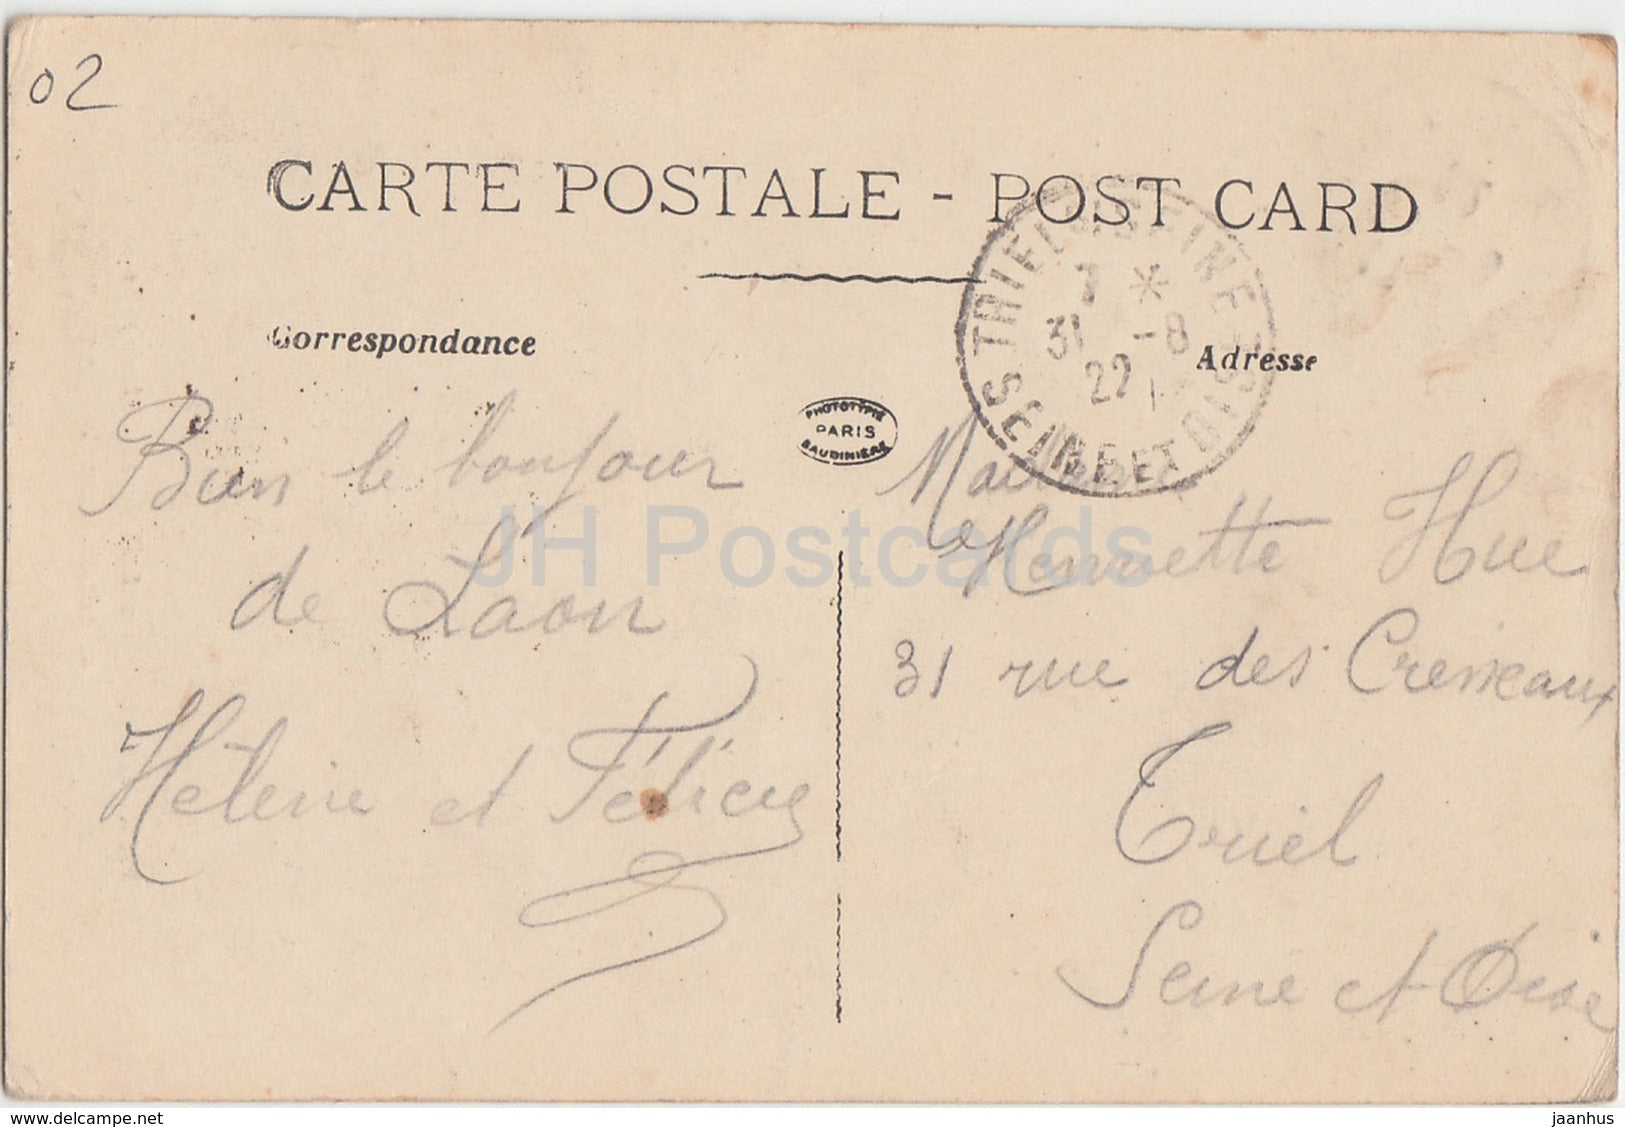 02
CARTE POSTALE - POST CARD
Correspondance
Adresse
TRIEL S. SEINE
7 *
31 -8
22
SEINE ET OISE
PHOTOTYPIE
PARIS
BAUDINIÈRE
Bien le bonjour
de Laon
Hélène et Félicie
Madame
Henriette Hue
31 rue des Cresseaux
Triel
Seine et Oise
JH Postcards
www.delcampe.net
jaanhus